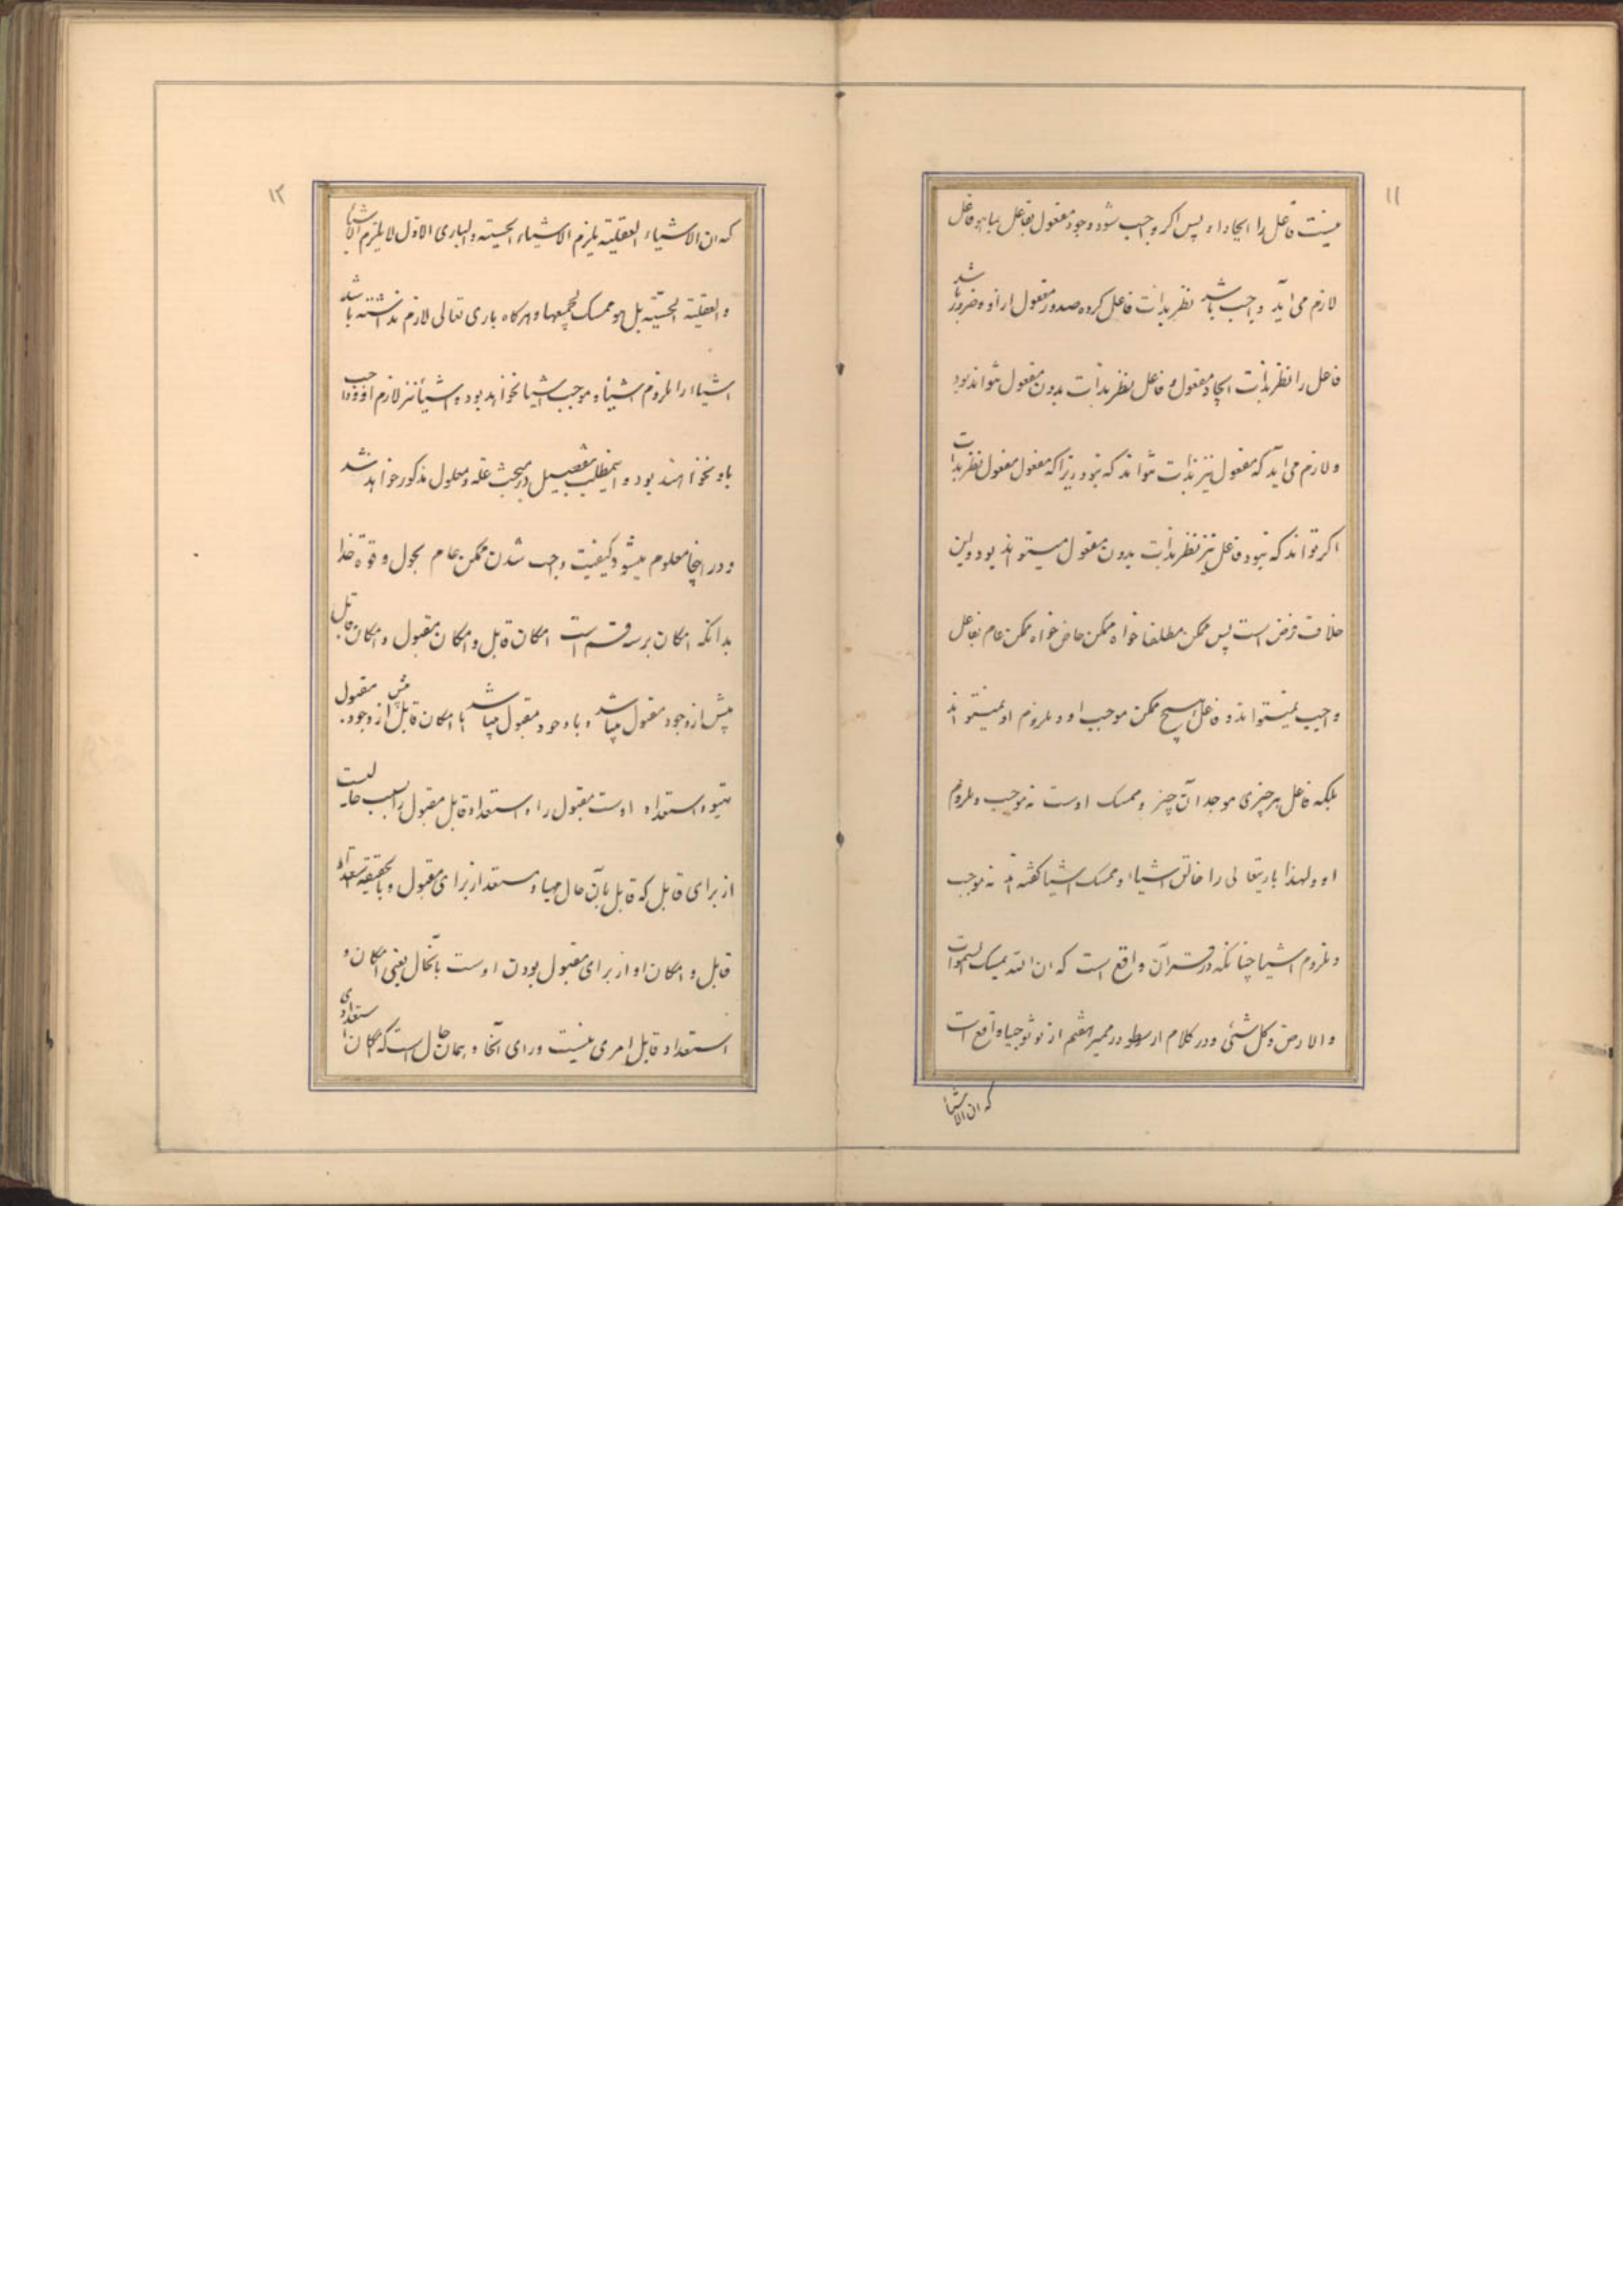 ۱۱
نیست فاعل را ایجاد او پس اکر واجب شود وجود مفعول بفاعل بما هو فاعل
لازم می آید واجب باشد نظر بذات فاعل کرده صدور مفعول از او و ضرور باشد
فاعل را نظر بذات ایجاد مفعول و فاعل نظر بذات بدون مفعول نتواند بود
و لازم می آید که مفعول نیز بذات نتواند که نبود زیرا که مفعول مفعول نظر بذات
اکر تواند که نبود فاعل نیز نظر بذات بدون مفعول میتواند بود و این
خلاف فرض است پس ممکن مطلقا خواه ممکن خاص خواه ممکن عام بفاعل
واجب نمیتواند و فاعل هیچ ممکن موجب او و ملزوم او نمیتواند
بلکه فاعل هر چیزی موجد آن چیز و ممسک اوست نه موجب و ملزوم
او و لهذا باریتعالی را خالق اشیاء و ممسک اشیا کفته اند نه موجب
و ملزوم اشیا چنانکه در قرآن واقع است که ان الله یمسک السموات
والارض و کل شئی و در کلام ارسطو در میمر هشتم از توثوجیا واقع است
که ان الاشیأ
۱۲
که ان الاشیاء العقلیة یلزم الاشیاء الحسیة والباری الاول لا یلزم الاشیأ
والعقلیة الحسیّة بل هو ممسک لجمیعها و هرکاه باری تعالی لازم نداشته باشد
اشیاء را ملزوم اشیاء و موجب اشیا نخواهد بود و اشیأ نیز لازم او و واجب
باو نخواهند بود و اینمطلب بتفصیل در مبحث علة و معلول مذکور خواهد شد
و در اینجا معلوم میشود کیفیت واجب شدن ممکن عام بحول و قوة خدا
بدانکه امکان بر سه قسم است امکان قابل و امکان مقبول و امکان قابل
پیش از وجود مقبول میباشد و با وجود مقبول میباشد با امکان قابل پیش از وجود مقبول
تهیو و استعداد اوست مقبول را و استعداد قابل مقبول را بسبب حالیست
از برای قابل که قابل بآن حال مهیا و مستعد از برای مقبول و بالحقیقه استعداد
قابل و امکان او از برای مقبول بودن اوست بآنحال یعنی امکان و
استعداد قابل امری نیست ورای آنحا و همان حال است که امکان استعدادی